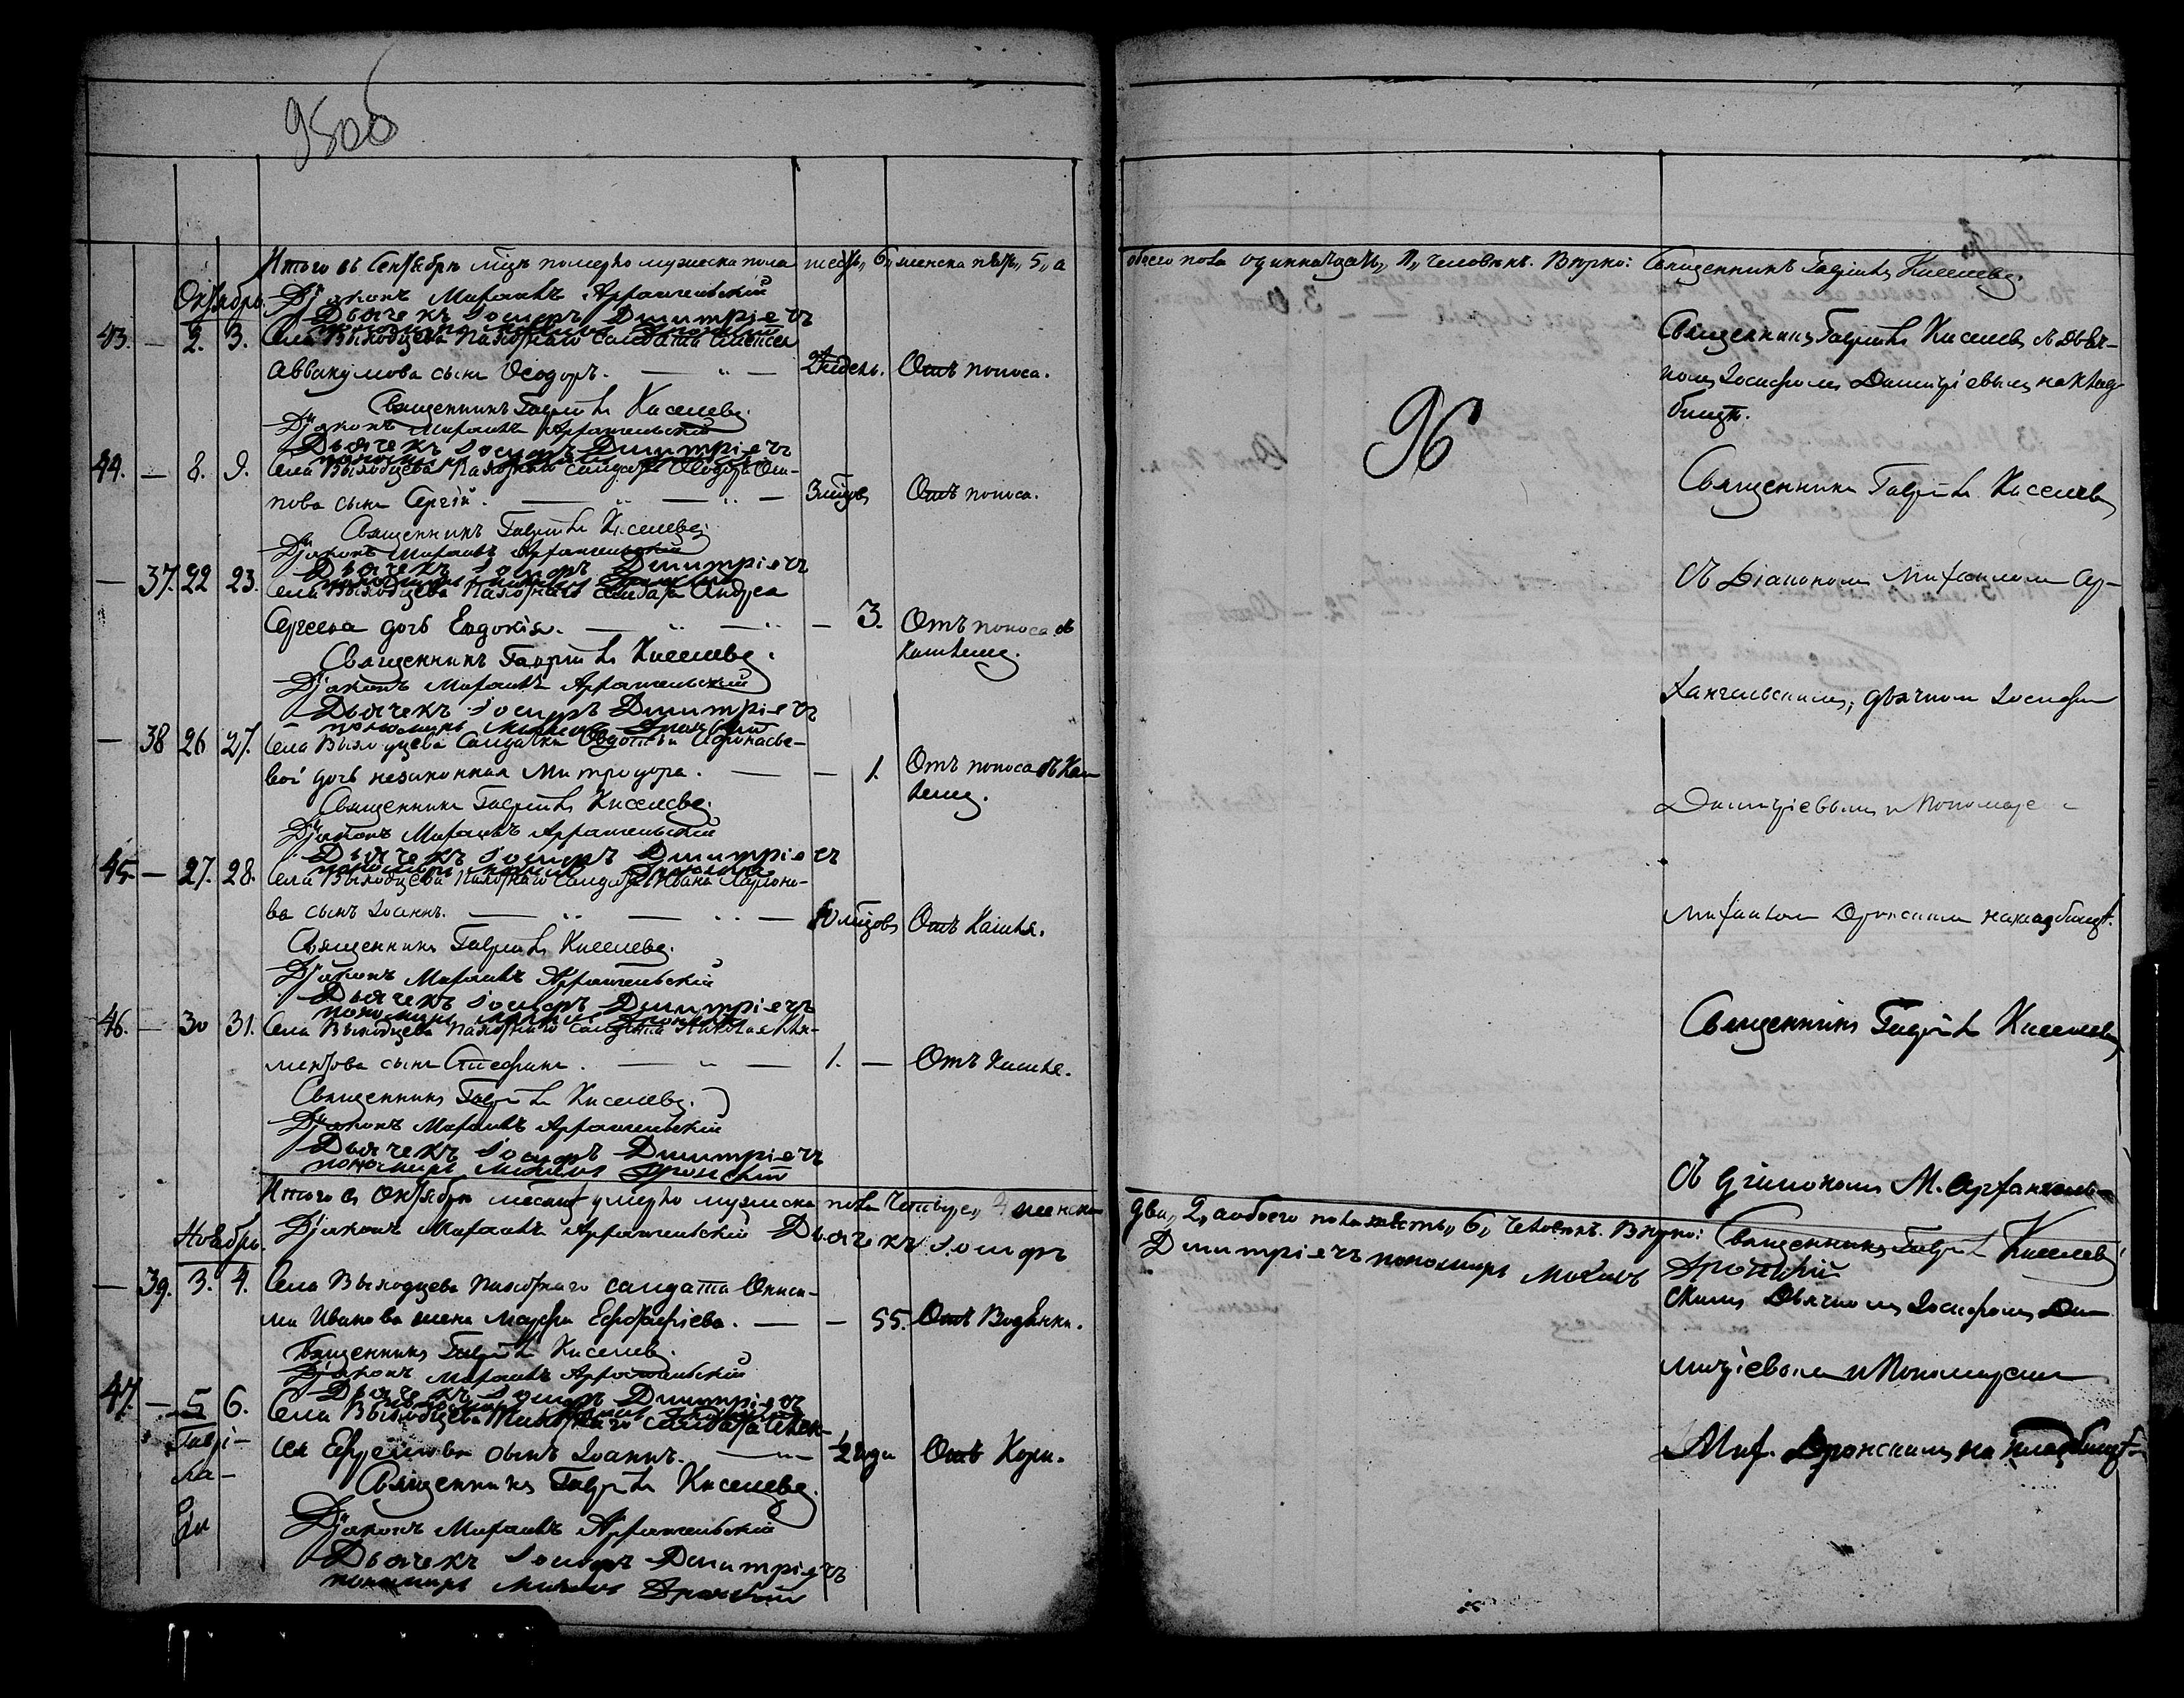 95об
Итого въ Сентябрѣ мцѣ померло мужеска пола шесть, 6, женска пять, 5, а
обоего пола одиннадцать, 11, человѣкъ. Вѣрно: Священникъ Гавріилъ Киселевъ.
Октябрь.
Діаконъ Михаилъ Архангельскій
Дьячекъ Іосифъ Димитріевъ
пономарь Михаилъ Дронскій
43. — 2. 3. Села Выходцева Пахотнаго Солдата Алексея
Аввакумова сынъ Ѳеодоръ. — „ — 2 недель. Отъ поноса.
Священникъ Гавріилъ Киселевъ.
Діаконъ Михаилъ Архангельскій
Дьячекъ Іосифъ Димитріевъ
44. — 8. 9. Села Выходцева Пахотнаго солдата Ѳеодора Оси-
пова сынъ Сергій. — „ — „ — 3 мцов Отъ поноса.
Священникъ Гавріилъ Киселевъ.
Діаконъ Михаилъ Архангельскій
Дьячекъ Іосифъ Димитріевъ
— 37. 22 23. Села Выходцева Пахотнаго Солдата Андрея
Сергеева дочь Евдокія. — „ — „ — 3. Отъ поноса съ
Кашлемъ.
Священникъ Гавріилъ Киселевъ.
Діаконъ Михаилъ Архангельскій
Дьячекъ Іосифъ Димитріевъ
пономарь Михаилъ Дронскій
— 38 26 27. Села Выходцева Солдатки Евдотьи Афонасье-
вой дочь незаконная Митродора. — — 1. Отъ поноса съ Каш
лемъ.
Священникъ Гавріилъ Киселевъ.
Діаконъ Михаилъ Архангельскій
Дьячекъ Іосифъ Димитріевъ
45. — 27. 28. Села Выходцева Пахотнаго Солдата Ивана Ларіоно-
ва сынъ Іоаннъ. — „ — „ — 10 мцовъ Отъ Кашля.
Священникъ Гавріилъ Киселевъ.
Діаконъ Михаилъ Архангельскій
Дьячекъ Іосифъ Димитріевъ
46. — 30 31. Села Выходцева Пахотнаго Солдата Николая Кли-
ментова сынъ Стефанъ. — „ — 1. — Отъ Кашля.
Священникъ Гавріилъ Киселевъ.
Діаконъ Михаилъ Архангельскій
Дьячекъ Іосифъ Димитріевъ
пономарь Михаилъ Дронскій
Итого въ Октябрѣ месяцѣ умерло мужеска пола четыре, 4 женска
Ноябрь.
Діаконъ Михаилъ Архангельскій Дьячекъ Іосифъ
— 39. 3. 4. Села Выходцева Пахотнаго солдата Ониси-
ма Иванова жена Марфа Ефстафіева. — — 55. Отъ Водянки.
Священникъ Гавріилъ Киселевъ.
Діаконъ Михаилъ Архангельскій
Дьячекъ Іосифъ Димитріевъ
47. — 5 6. Села Выходцева Пахотнаго Солдата Алек-
Гаврі- сея Ефремова сынъ Іоаннъ. — „ — 1/2 года Отъ Кори.
ла-
Священникъ Гавріилъ Киселевъ.
Діаконъ Михаилъ Архангельскій
Дьячекъ Іосифъ Димитріевъ
пономарь Михаилъ Дронскій
96
Священникъ Гавріилъ Киселевъ съ Дьяч-
комъ Іосифомъ Димитріевымъ на клад-
бищѣ.
Священникъ Гавріилъ Киселевъ
съ Діакономъ Михаиломъ Ар-
хангельскимъ, дьячкомъ Іосифомъ
Димитріевымъ и Пономаремъ
Михаиломъ Дронскимъ на кладбищѣ.
Священникъ Гавріилъ Киселевъ
съ діакономъ М. Архангель-
два, 2, а обоего пола шесть, 6, человѣкъ. Вѣрно: Священникъ Гавріилъ Киселевъ
Димитріевъ пономарь Михаилъ Дронскій
скимъ Дьячкомъ Іосифомъ Ди-
митріевымъ и Пономаремъ
Мих. Дронскимъ на кладбищѣ.